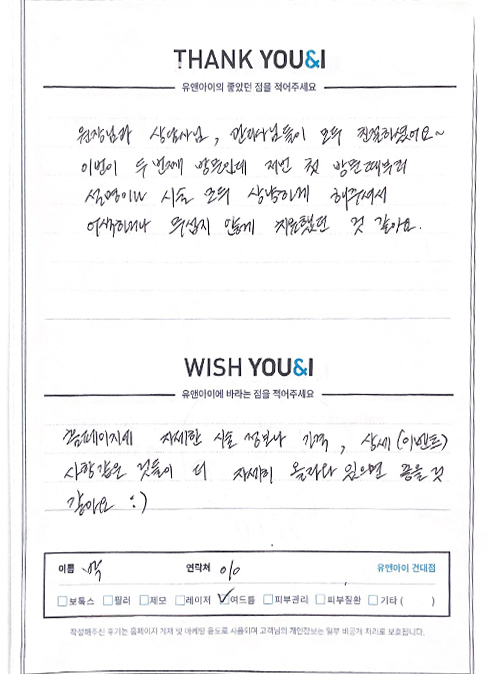 THANK YOU&I
유앤아이의 좋았던 점을 적어주세요
원장님과 상담사님, 관리사님들이 모두 친절하셨어요~
이번이 두번째 방문인데 저번 첫 방문때부터
설명이나 시술 모두 상냥하게 해주셔서
어색하거나 무섭지 않게 치료했던 것 같아요.
WISH YOU&I
유앤아이에 바라는 점을 적어주세요
홈페이지에 자세한 시술 정보나 가격, 상세(이벤트)
사항같은 것들이 더 자세히 올라와 있으면 좋을것
같아요 :)
이름 연락처 010 유앤아이 건대점
보톡스 필러 제모 레이저 여드름 피부관리 피부질환 기타 ( )
작성해주신 후기는 홈페이지 게재 및 마케팅 용도로 사용되며 고객님의 개인정보는 일부 비공개 처리로 보호됩니다.